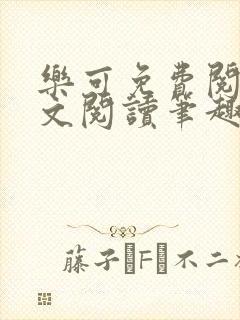 樂可免費閱
文閱讀筆趣
藤子·F·不二